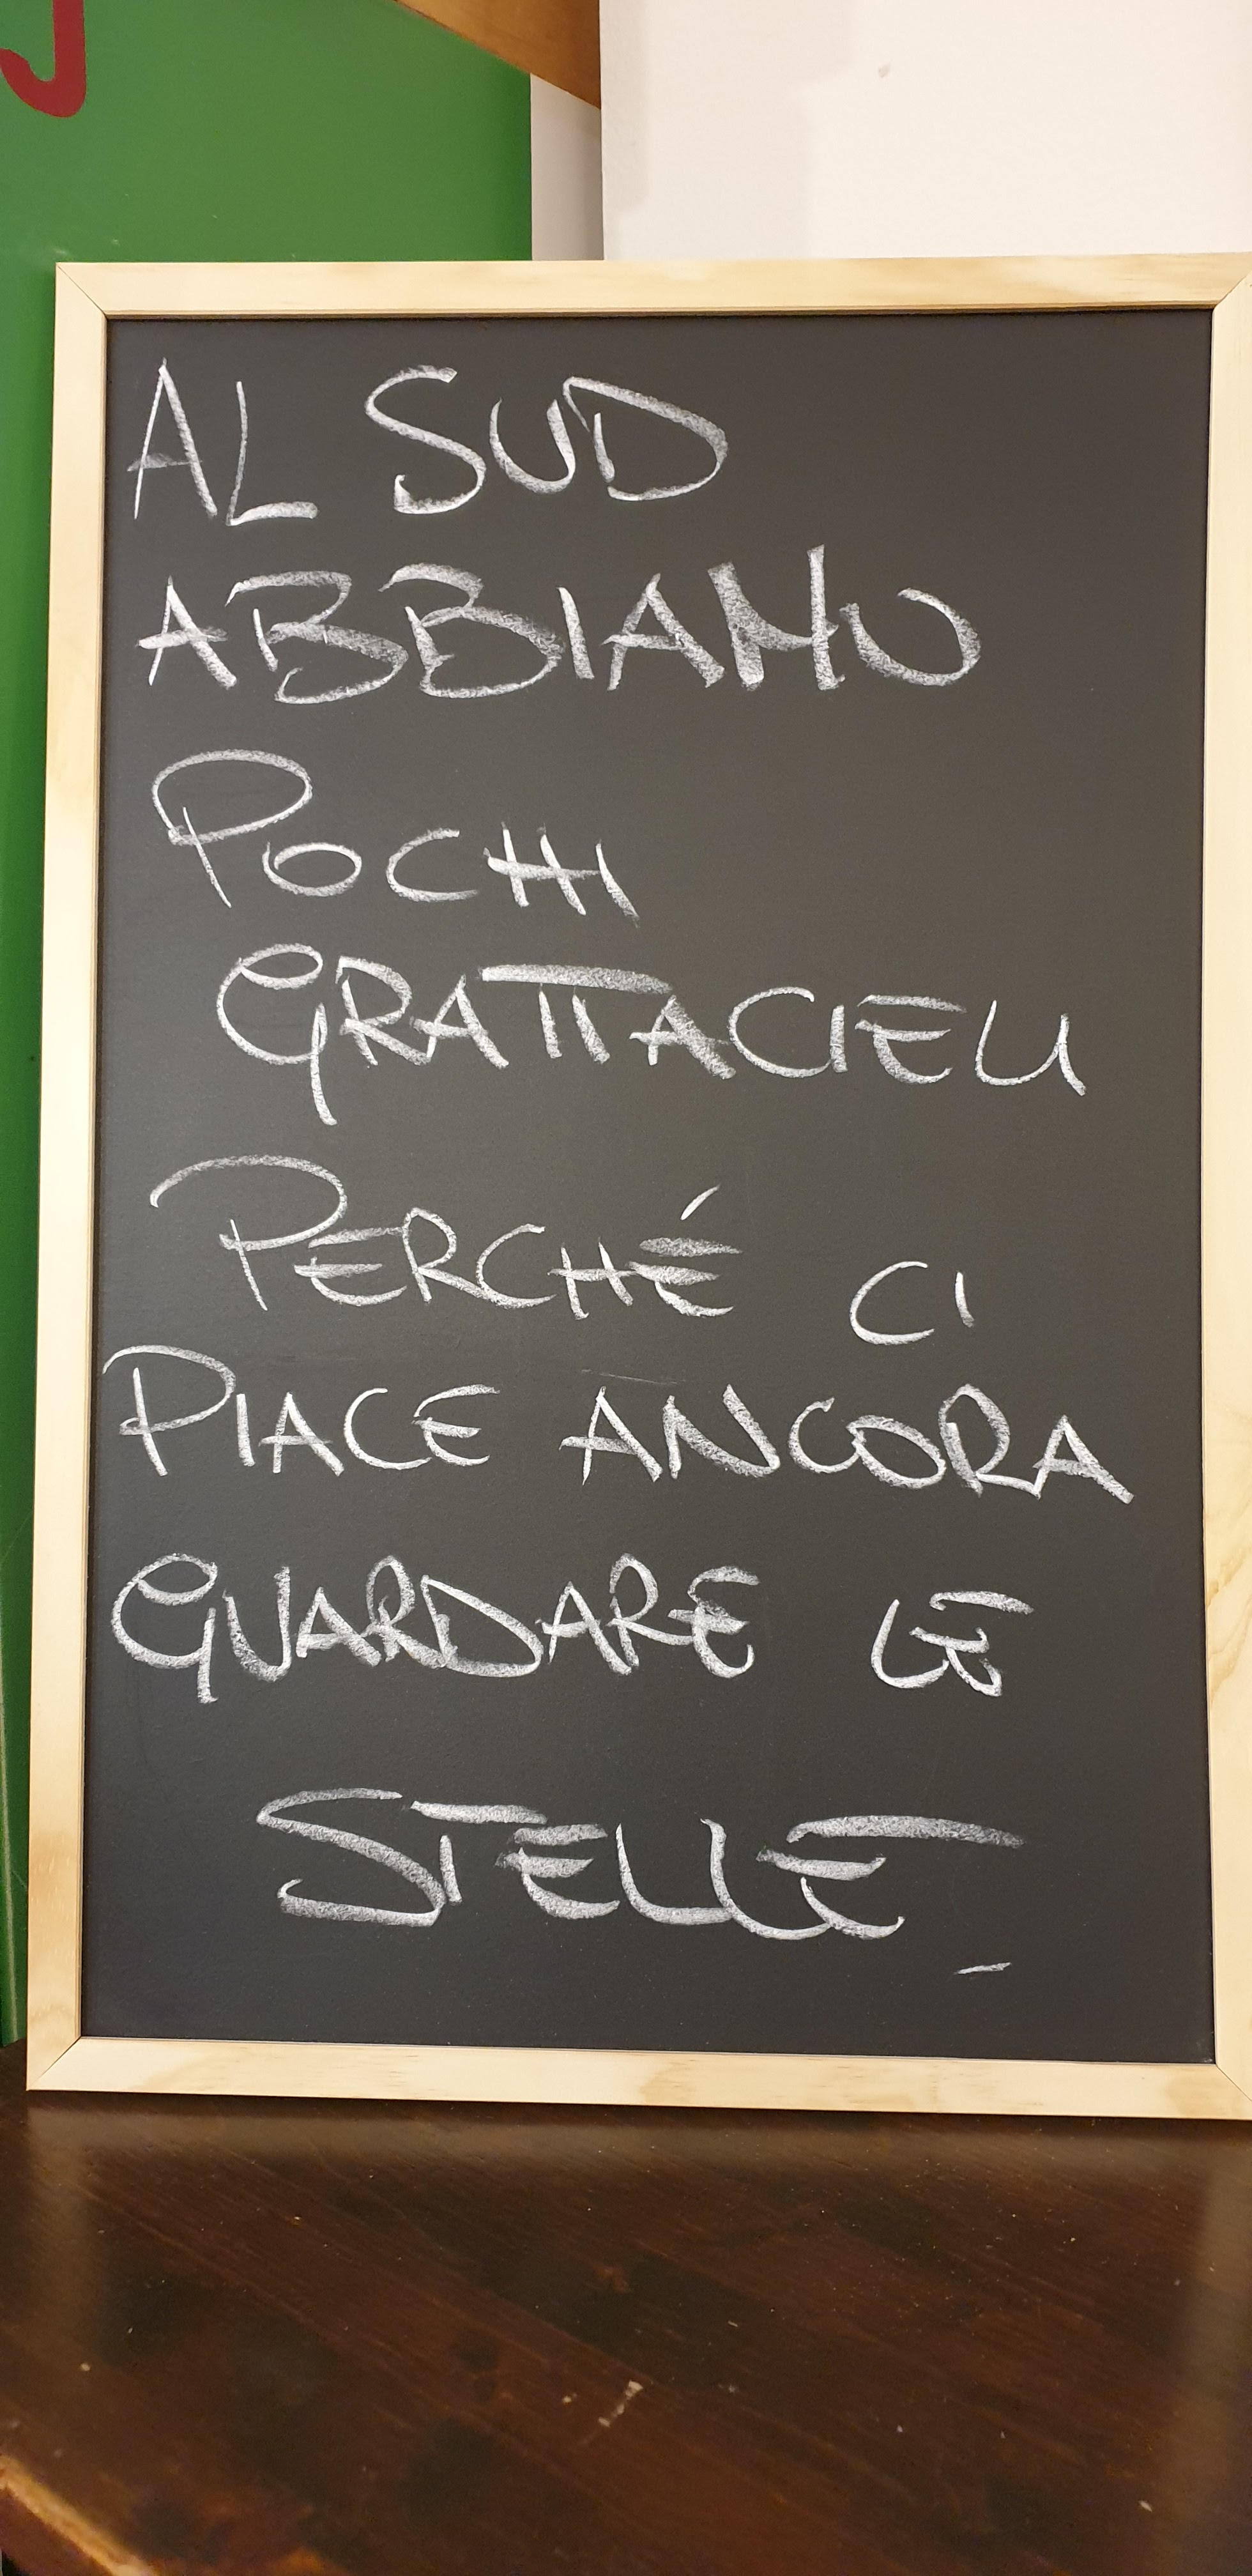 AL SUD
ABBIAMO
POCHI
GRATTACIELI
PERCHÉ CI
PIACE ANCORA
GUARDARE LE
STELLE